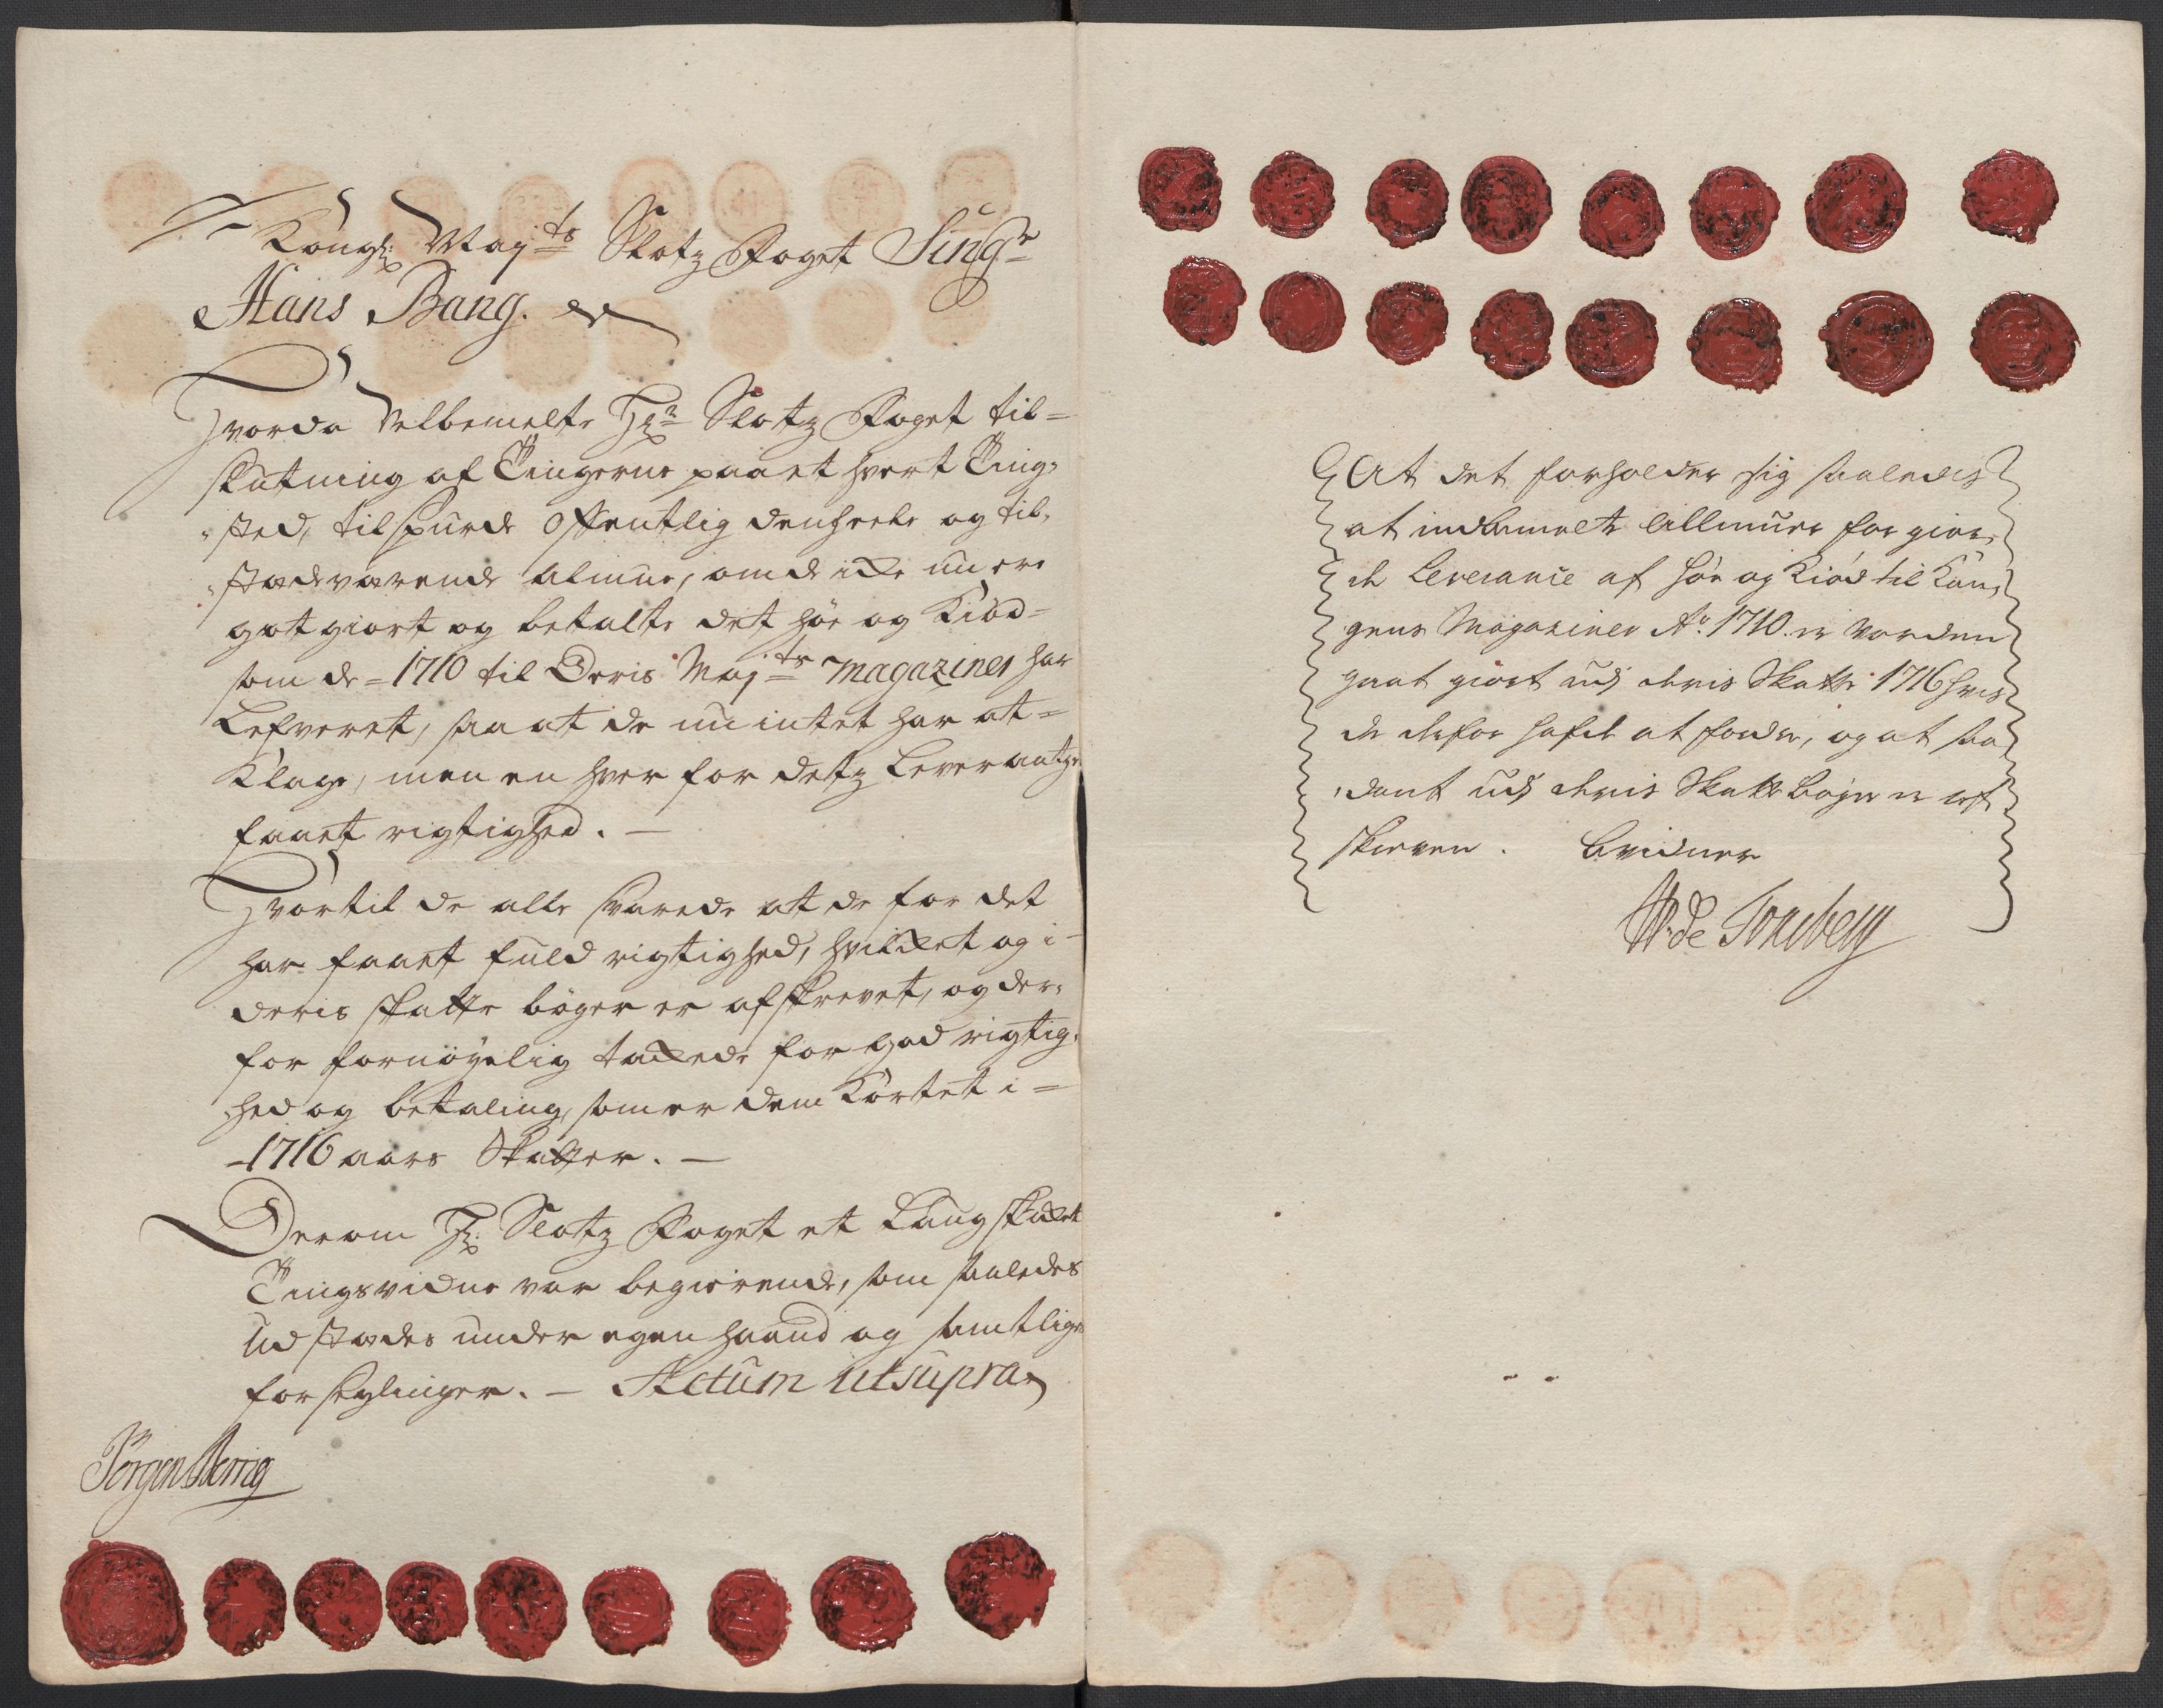 Kongl: Maj:ts Slotz Foget Sing:r
Hans Bang.
Hvorda Velbemelte Hr: Slotz Foget til-
slutning af Tingerne paa et hvert Ting-
sted, tilspurde offentlig den heele og til-
stædeværende almue, om de icke nu ere
got giort og betalte det höe og Kiöd-
som de = 1710 til Deris Maj:ts Magaziner har
Lefveret, saa at de nu intet har at-
Klage, men en hver for detz Leverantze
faaet rigtighed. —
Hvortil de alle svarede at de for det
har faaet fuld rigtighed, hvilcket og i-
deris skatte böger er afskrevet, og der-
for fornöyelig tackede for god rigtig-
hed og betaling, som er dem Kortet i =
-1716 aars Skatter. —
Derom Hr: Slotz Foget et Laug skicket
Tingsvidne var begierende, som saaledes
Udstædes under egen haand og samtlige
forseglinger. — Actum ut supra
Jörgen
At det forholder sig saaledes
at indbemelte Allmuer for gior-
de Leverance af höe og Kiöd til Kon-
gens Magaziner A:o 1710. er vorden
gaat giort udj deris Skatter 1716 hvis
de derfor hafde at fordre, og at saa-
dant udj deris Skatte bøger er af-
skreven. Bevidner